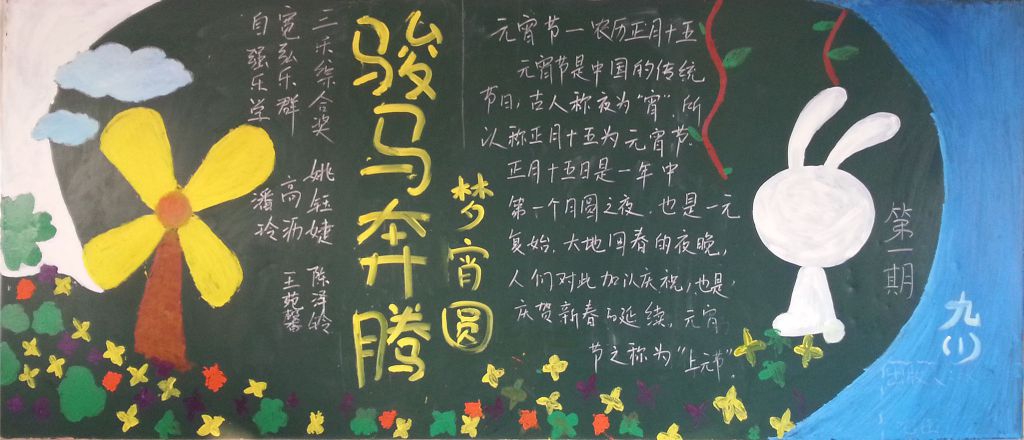 三禾综合奖 姚钰婕 陈洋铃
宽弘乐群 高沥 王苑馨
自强乐学 潘玲
骏马奔腾
梦宵圆
元宵节—农历正月十五
元宵节是中国的传统
节日,古人称夜为“宵”,所
以称正月十五为元宵节.
正月十五日是一年中
第一个月圆之夜.也是一元
复始.大地回春的夜晚,
人们对此加以庆祝,也是
庆贺新春的延续,元宵
节之称为“上元节”.
第一期
九(1)